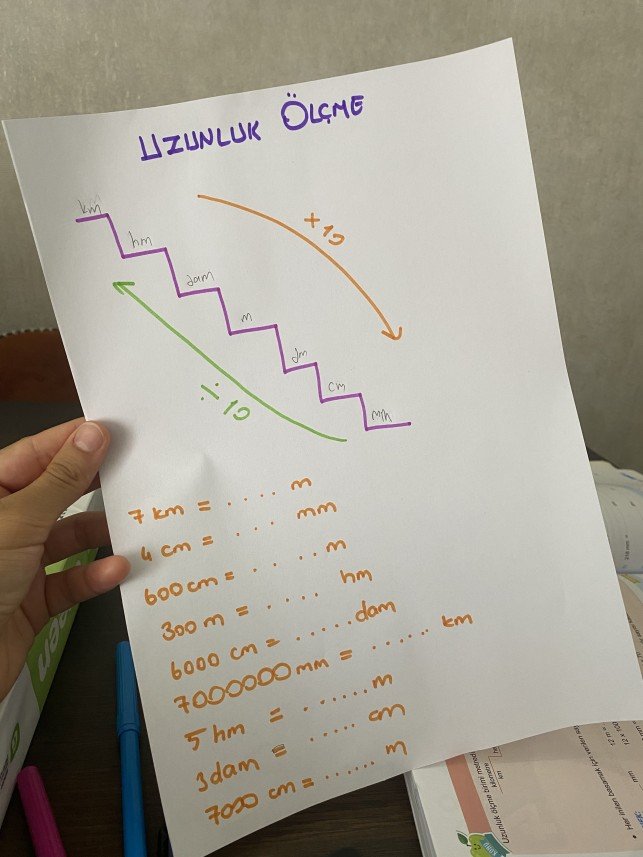 UZUNLUK ÖLÇME
km
hm
dam
m
dm
cm
mm
x 10
÷ 10
7 km = .... m
4 cm = .... mm
600 cm = .... m
300 m = .... hm
6000 cm = ..... dam
7000000 mm = ...... km
5 hm = ...... m
3 dam = .... cm
7000 cm = ...... m